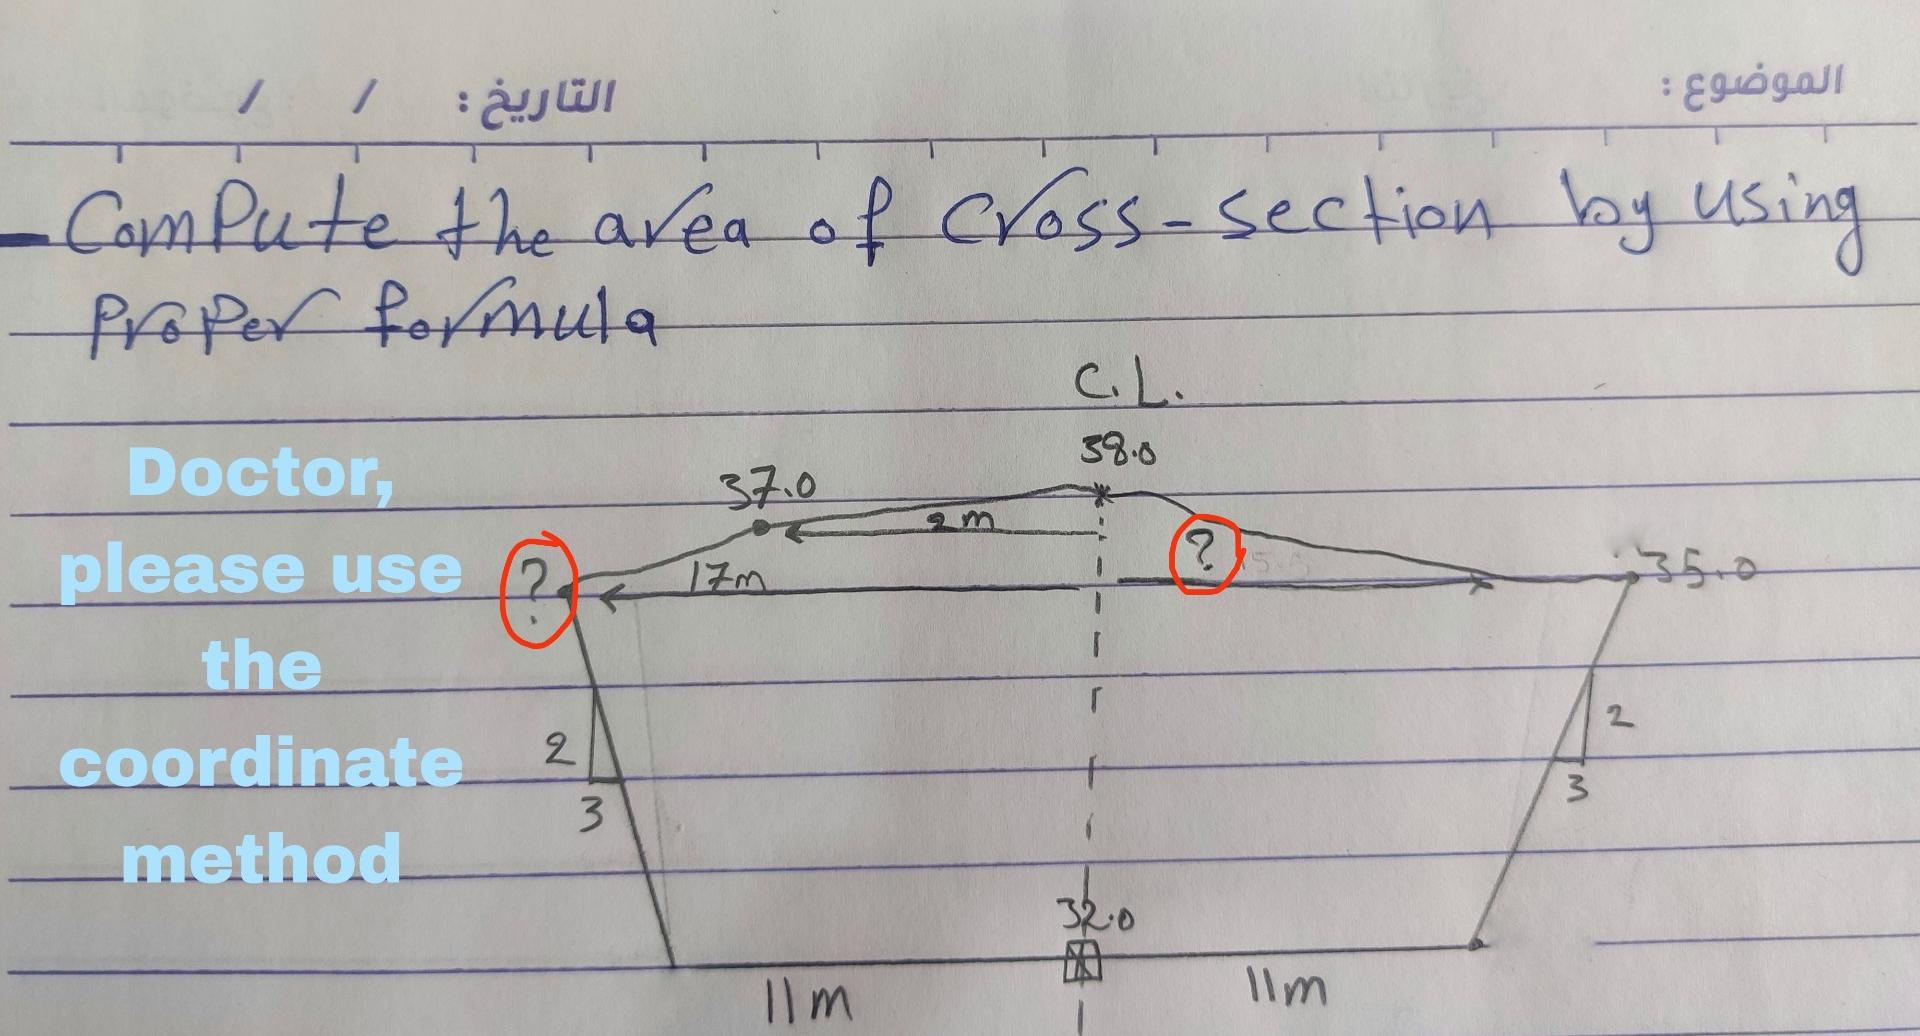 الموضوع:
التاريخ: / /
- Compute the area of cross-section by using
proper formula
C.L.
38.0
37.0
2m
?
17m
?
35.0
2
3
2
3
32.0
11m
11m
Doctor,
please use
the
coordinate
method